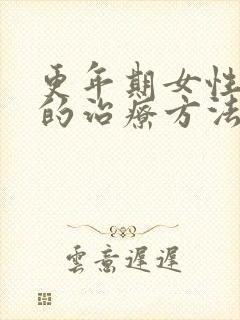 更年期女性
的治疗方法
雲意遲遲